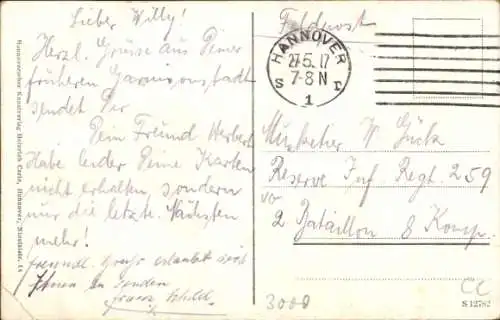 Lieber Willy!
Herzl. Grüsse aus Deiner
früheren Garnisonstadt
sendet Dir
Dein Freund Herbert
Habe leider Deine Karten
nicht erhalten sondern
nur die letzte. Nächstens
mehr!
freundl. Gruß erlaubt sich
Ihnen zu senden
Franz
Hannoverscher Kunstverlag Heinrich Carle, Hannover,
Feldpost
HANNOVER
27.5.17
7-8 N
S 1 r
Musketier W Gück
Reserve Inf Regt. 259
2 Bataillon 8 Komp.
3000
CC
S 12782